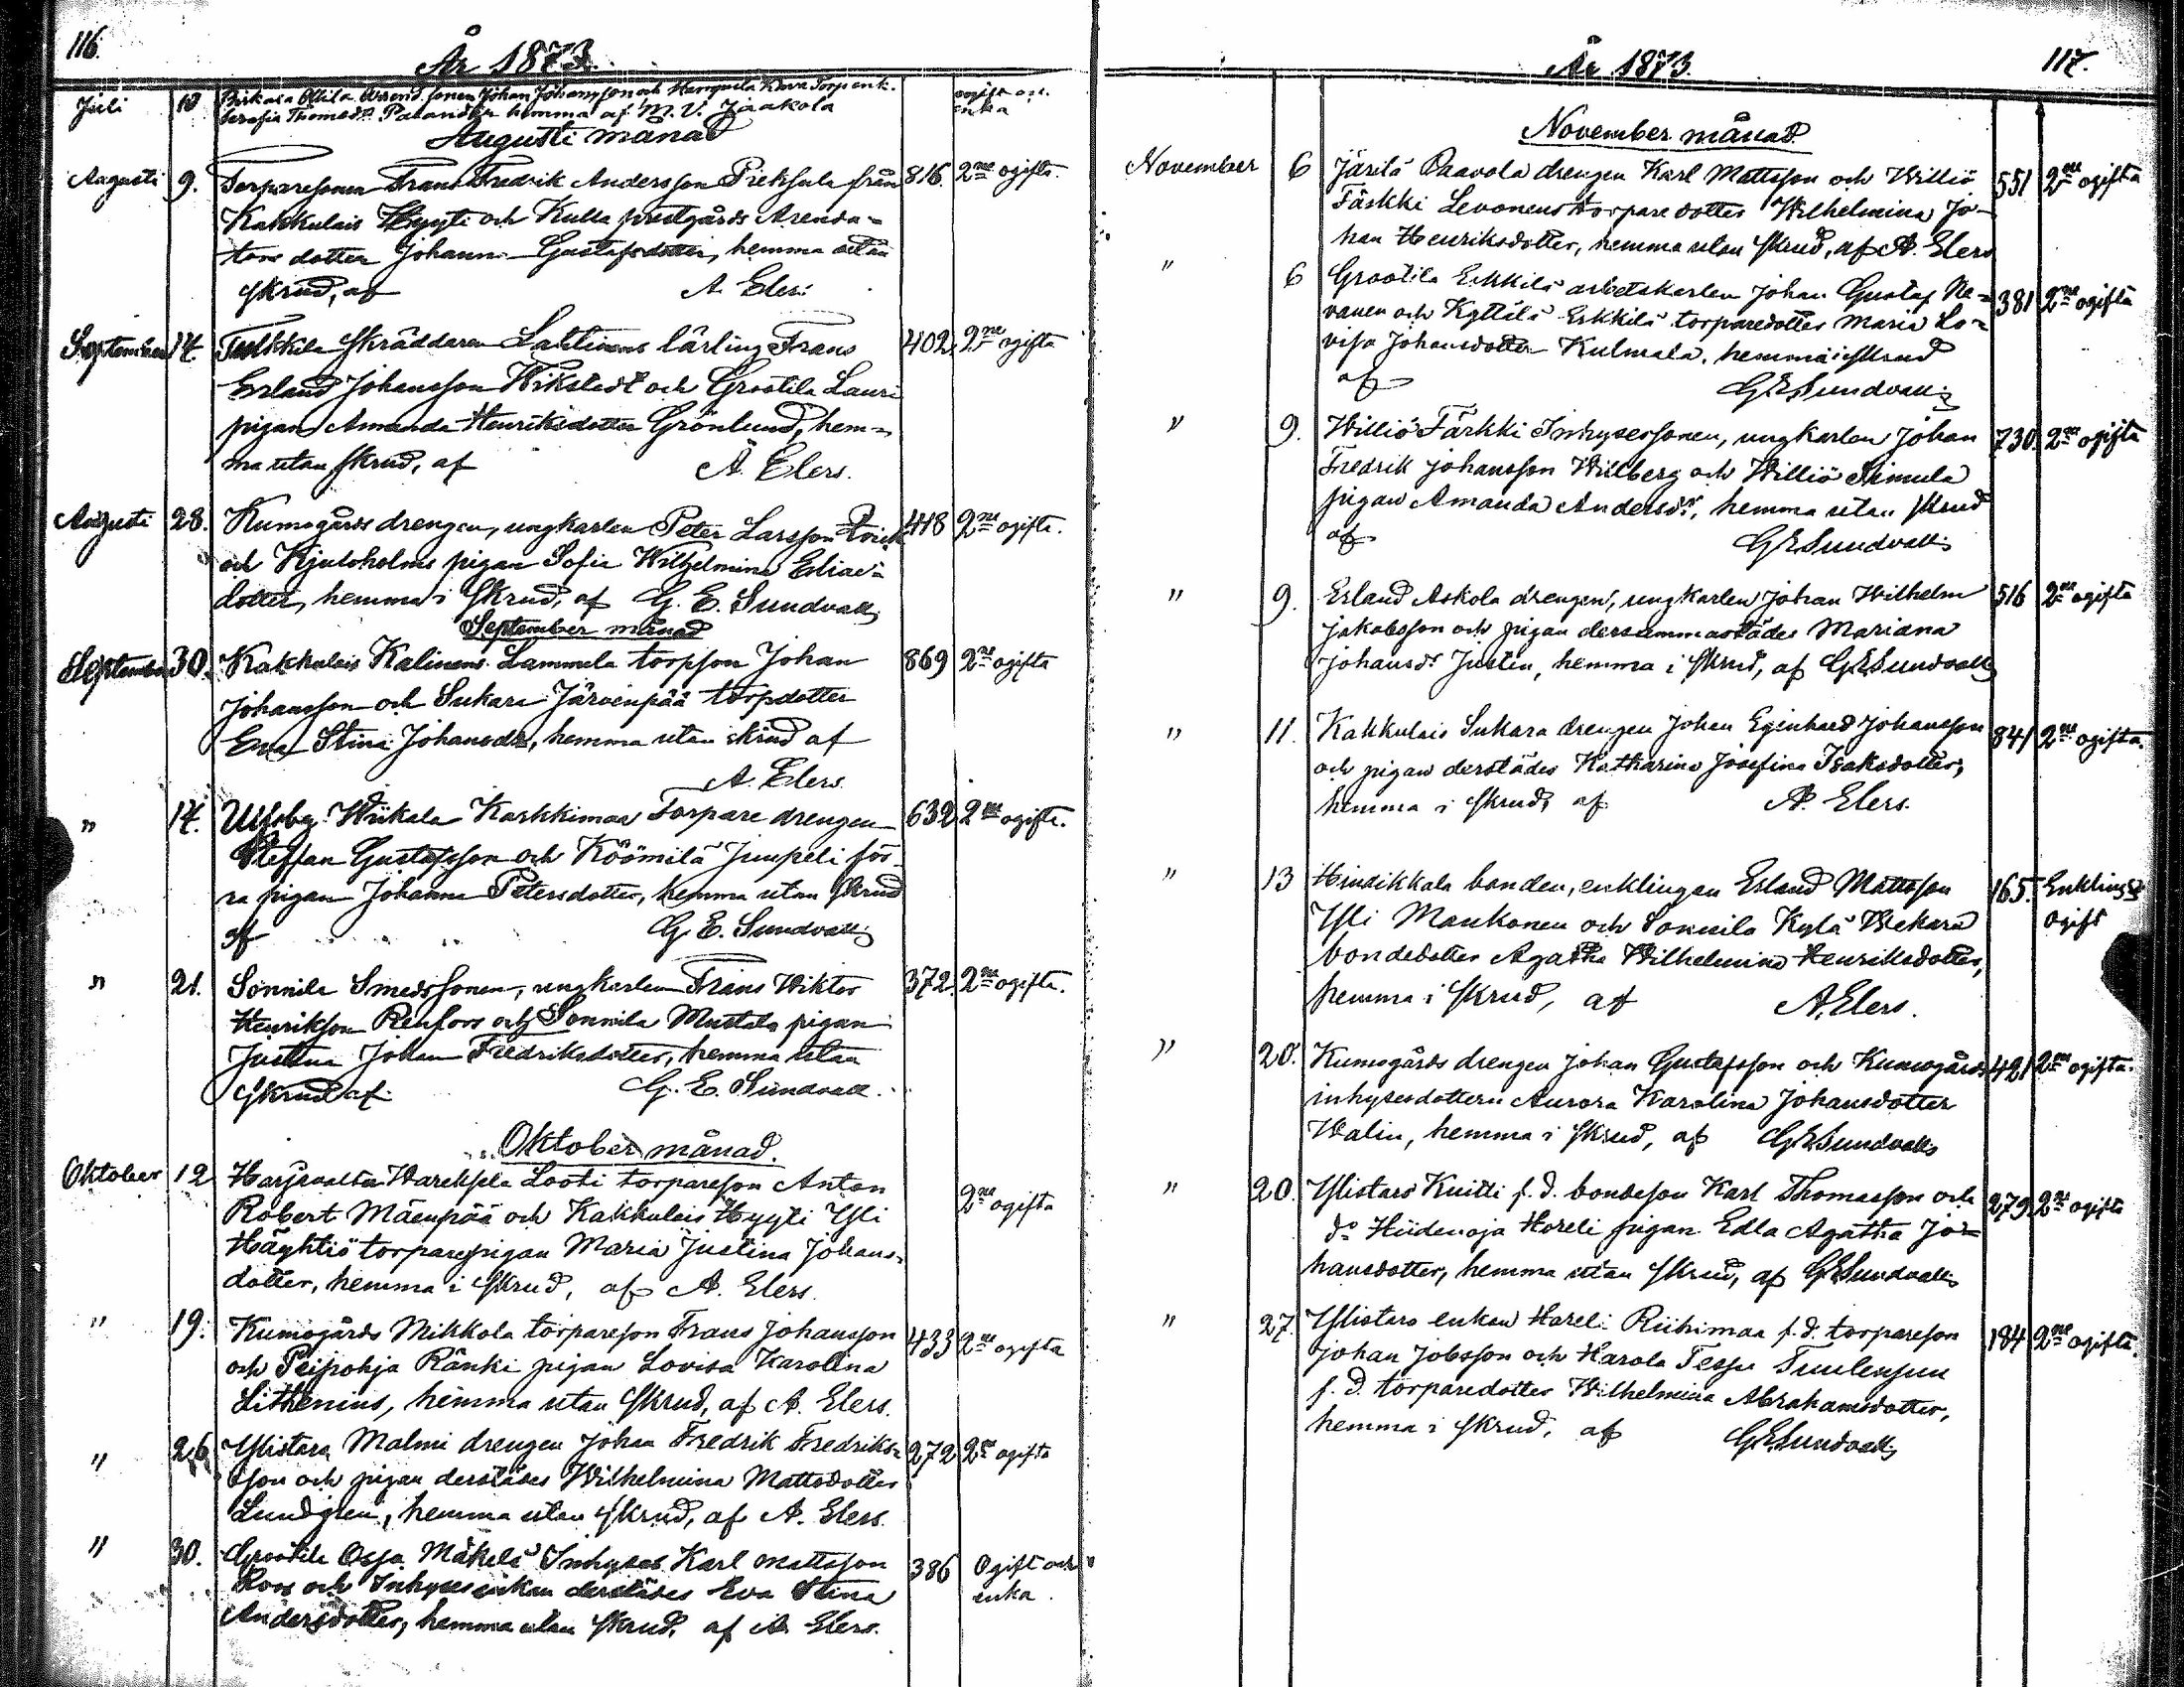 116.
År 1873.
Juli 10 Birkala Ollila Arrend. sonen Johan Johansson och Torp enk.
Serafia Thomasdr hemma af M. V. Jaakola
ogift och enka
Augusti månad
Augusti 9. Torparesonen Frans Fredrik Andersson Preksula från 816. 2ne ogifta.
Kakkulais Hyyti och Kulla prestgårds Arenda-
tors dotter Johanna Gustafsdotter, hemma utan
skrud, af A. Elers
September 14. Tulkkila Skräddaren lärling Frans 402. 2ne ogifta
Erland Johansson Wikstedt och Grootila Lauri
pigan Amanda Henriksdotter Grönlund, hem-
ma utan skrud, af A. Elers.
Augusti 28. Kumogårds drengen, ungkarlen Peter Larsson 418 2ne ogifta.
och Kjuloholms pigan Sofia Wilhelmina Esiae-
dotter, hemma i Skrud, af G. E. Sundvall
September månad
September 30. Kakkulais Kalinens Lammela torpson Johan 869 2ne ogifta
Johansson och Sukara Järvenpää torpdotter
Eva Stina Johansdr, hemma utan skrud af
A. Elers.
" 14. Ulfsby Wiikala Karkkimaa Torpare drengen 632 2ne ogifta.
Steffan Gustafsson och Köömilä Junpeli för-
ra pigan Johanna Petersdotter, hemma utan Skrud
af G. E. Sundvall
" 21. Sonnila Smedssonen, ungkarlen Frans Viktor 372. 2ne ogifta.
Henriksson Renfors och Sonnila Mustala pigan
Justina Johan Fredriksdotter, hemma utan
Skrud af G. E. Sundvall.
Oktober månad.
Oktober 12 Harjavalta Wareksela Looti torpareson Anton 2ne ogifta
Robert Mäenpää och Kakkulais Hyyti Yli
Häyhtiö torparepigan Maria Justina Johans-
dotter, hemma i Skrud, af A. Elers.
" 19. Kumogårds Mikkola torpareson Frans Johansson 433 2ne ogifta
och Peipohja Ränki pigan Lovisa Karolina
Lithenius, hemma utan Skrud, af A. Elers.
" 26 Ylistaro Malmi drengen Johan Fredrik Fredriks- 272 2ne ogifta
son och pigan derstädes Wilhelmina Mattsdotter
Lundgren, hemma utan Skrud, af A. Elers.
" 30. Grootila Ossa Mäkelä Inhyses Karl Mattsson 386 Ogift och
Roos och Inhyses enkan derstädes Eva Stina enka.
Andersdotter, hemma utan Skrud, af A. Elers.
117.
År 1873.
November månad.
November 6 Järilä Paavola drengen Karl Mattsson och Williö 551 2ne ogifta
Färkki Levonens torpare dotter Wilhelmina Jo-
han Henriksdotter, hemma utan Skrud, af A. Elers
" 6 Grootila Erkkilä arbetskarlen Johan Gustaf Ne- 381 2ne ogifta
vanen och Kyttälä Erkkilä torparedotter Maria Lo-
visa Johansdotter Kulmala, hemma i skrud
af G E Sundvall
" 9. Williö Färkki Inhysessonen, ungkarlen Johan 730. 2ne ogifta
Fredrik Johansson Willberg och Williö Simula
pigan Amanda Andersdr, hemma utan Skrud
af G E Sundvall
" 9. Erland Askola drengen, ungkarlen Johan Wilhelm 516 2ne ogifta
Jakobsson och pigan dersammastädes Mariana
Johansdr Justin, hemma i Skrud, af G E Sundvall
" 11. Kakkulais Sukara drengen Johan Eginhard Johansson 841 2ne ogifta.
och pigan derstädes Katharina Josefina Isaksdotter,
hemma i Skrud, af A. Elers.
" 13 Hindikkala bonden, enklingen Erland Mattsson 165. Enkling &
Yli Maukonen och Sonnila Kylä Wekara ogift
bondedotter Agatha Wilhelmina Henriksdotter,
hemma i Skrud, af A. Elers.
" 20. Kumogårds drengen Johan Gustafsson och Kumogårds 421 2ne ogifta.
inhysesdottern Aurora Karolina Johansdotter
Walin, hemma i Skrud, af G E Sundvall
" 20. Ylistaro Knitti f. d. bondeson Karl Thomasson och 279. 2ne ogifta
do Hiidenoja Horeli pigan Edla Agatha Jo-
hansdotter, hemma utan Skrud, af G E Sundvall
" 27. Ylistaro enkan Hareli Riihimaa f. d. torpareson 184 2ne ogifta.
Johan Jobsson och Harola Tessu Tuulensuu
f. d. torparedotter Wilhelmina Abrahamsdotter,
hemma i Skrud, af G E Sundvall